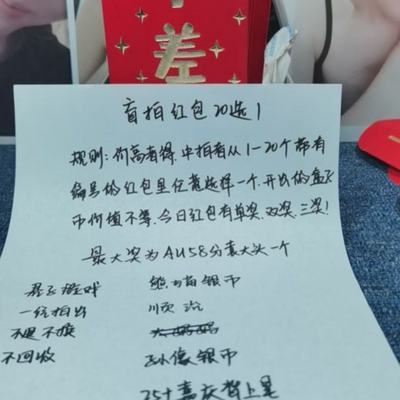 差
盲拍红包20选1
规则:价高者得.中拍者从1—20个带有
编号的红包里任意选择一个.开出的盒子
币价值不等.今日红包有单奖.双奖.三奖!
最大奖为AU58分袁大头一个
熊猫银币
一经拍出 顺治
不退不换
不回收 孙像银币
25十嘉庆背上星